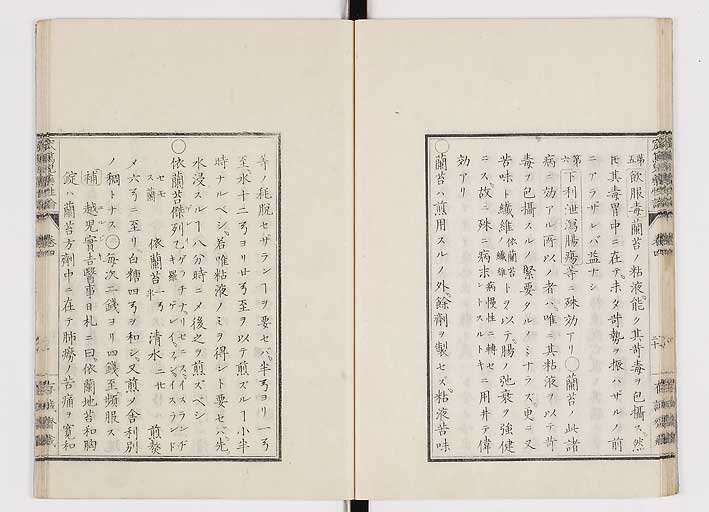 第五 飲服毒蘭苔ノ粘液能ク其苛毒ヲ包攝ス然
𪜈其毒胃中ニ在テ未タ苛勢ヲ振ハザルノ前
ニアラザレバ益ナシ
第六 下利泄瀉腸瘍等ニ殊効アリ○蘭苔ノ此諸
病ニ効アル所以ノ者ハ唯ニ其粘液ヲ以テ苛
毒ヲ包攝スルノ緊要タルノミナラズ更ニ又
苦味ト纖維依蘭苔ノ纖維トヲ以テ腸ノ弛衰ヲ強健
ニス故ニ殊ニ病末慢性ニ轉セントスルトキニ用井テ偉
効アリ
○蘭苔ハ煎用スルノ外餘劑ヲ製セズ粘液苦味
等ノ耗脱セザランヿヲ要セバ半ヨリ一
至水十二ヨリ廿至ヲ以テ煎ズルヿ小半
時ナルベシ若唯粘液ノミヲ得ント要セバ先
水浸スルヿ八分時ニメ後之ヲ煎ズベシ
○依蘭苔傑列乙
依蘭苔 一半 清水 二廿 煎熬
メ六ニ至リ白糖四ヲ和シ又煎メ舎利別
ノ稠トナス○毎次二錢ヨリ四錢至頻服ス
補 越児實吉醫事日札ニ曰依蘭地苔和胸
錠ハ蘭苔方劑中ニ在テ肺癆ノ苦痛ヲ寛和